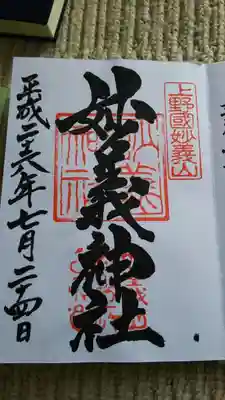 上野國妙義山
妙義神社
平成二十八年七月二十四日